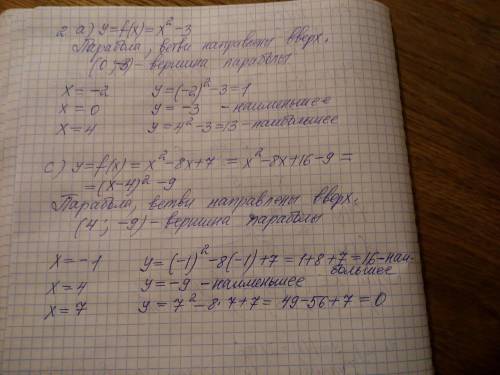 2. a) y=f(x)=x²-3
Парабола, ветви направлены вверх.
(0;-3) - вершина параболы
x=-2 y=(-2)²-3=1
x=0 y=-3 - наименьшее
x=4 y=4²-3=13 - наибольшее
c) y=f(x)=x²-8x+7 = x²-8x+16-9=
=(x-4)²-9
Парабола, ветви направлены вверх.
(4; -9) - вершина параболы
x=-1 y=(-1)²-8(-1)+7=1+8+7=16-наи-
большее
x=4 y=-9 - наименьшее
x=7 y=7²-8·7+7=49-56+7=0